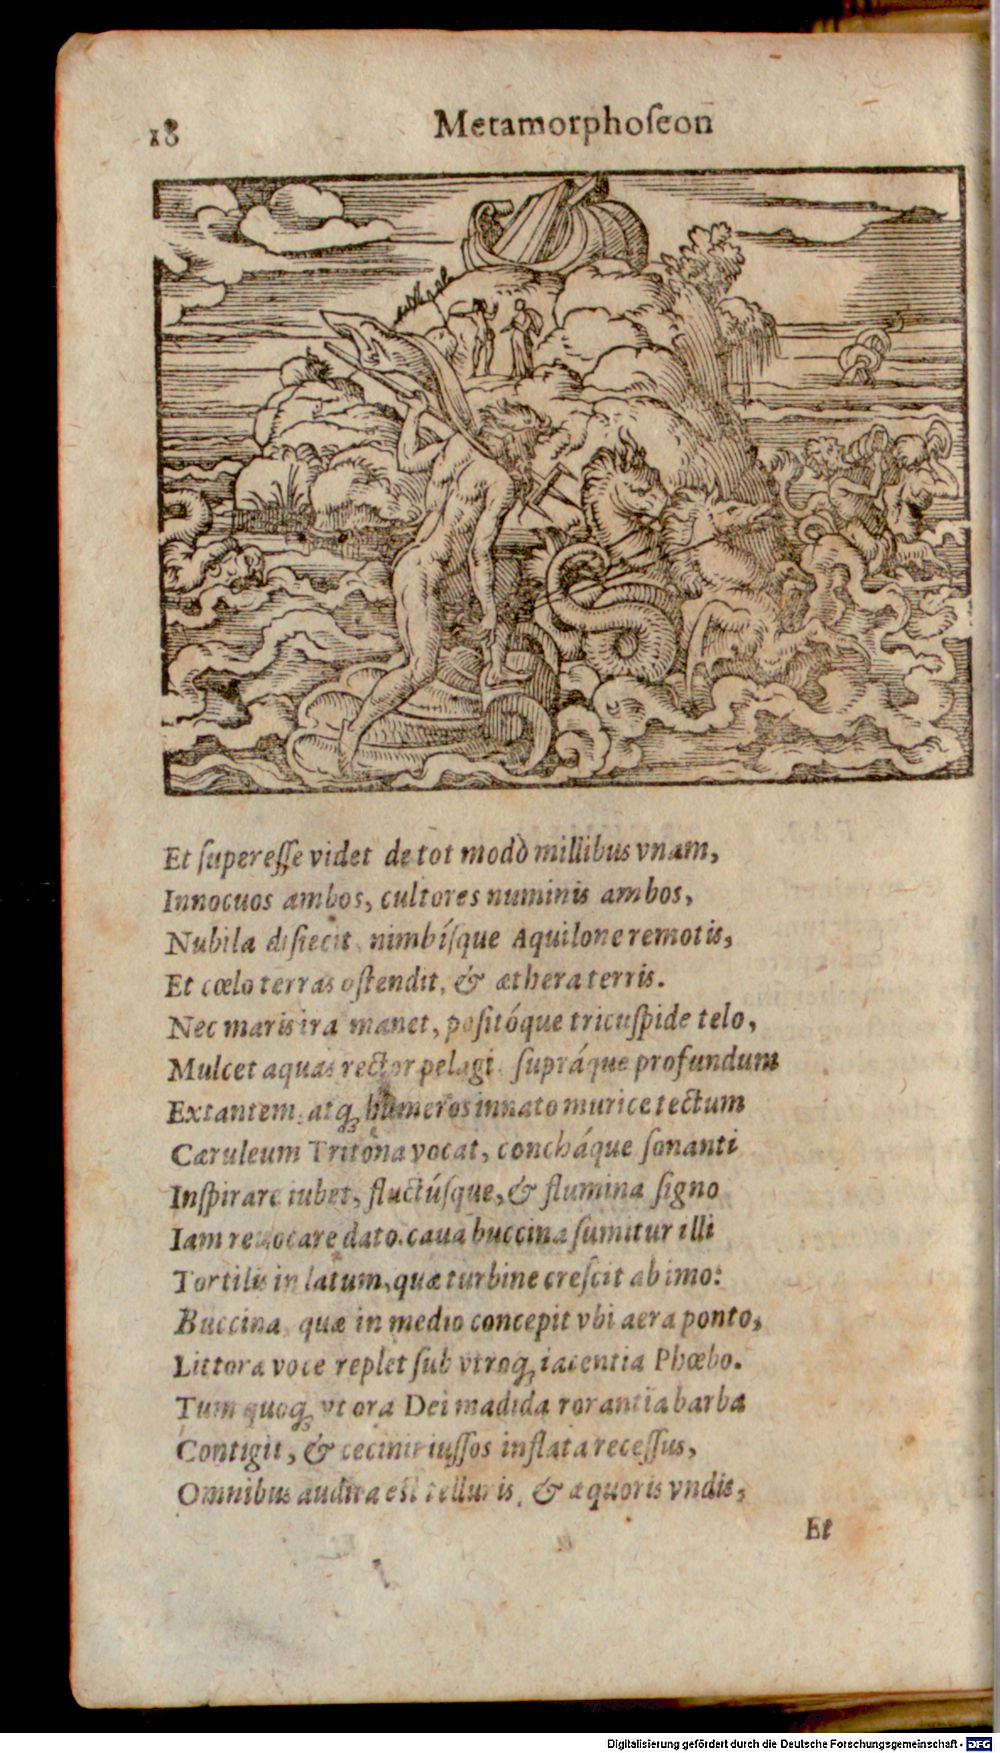 18
Metamorphoſeon
Et ſupereſſe videt de tot modò millibus vnam,
Innocuos ambos, cultores numinis ambos,
Nubila diſiecit, nimbíſque Aquilone remotis,
Et cœlo terras oſtendit, & æthera terris.
Nec maris ira manet, poſitóque tricuſpide telo,
Mulcet aquas rector pelagi, ſupráque profundum
Extantem, atq; humeros innato murice tectum
Cæruleum Tritona vocat, concháque ſonanti
Inſpirare iubet, fluctúſque, & flumina ſigno
Iam reuocare dato. caua buccina ſumitur illi
Tortilis in latum, quæ turbine creſcit ab imo:
Buccina, quæ in medio concepit vbi aera ponto,
Littora voce replet ſub vtroq; iacentia Phœbo.
Tum quoq; vt ora Dei madida rorantia barba
Contigit, & cecinit iuſſos inflata receſſus,
Omnibus audita eſt telluris, & æquoris vndis,
Et
Digitalisierung gefördert durch die Deutsche Forschungsgemeinschaft - DFG